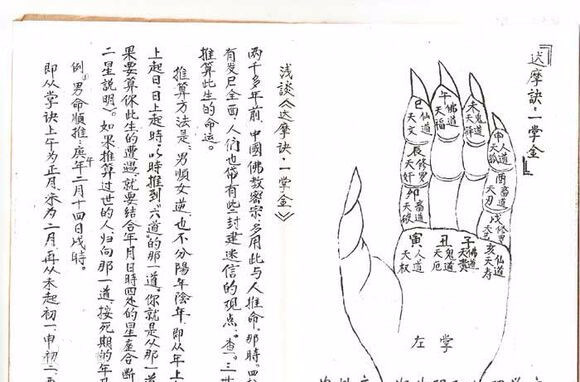 『达摩訣·一掌金』
巳仙道天文
午佛道天福
未鬼道天驛
申人道天孤
辰修罗天奸
酉畜道天刃
卯畜道天破
戌修罗天艺
寅人道天权
丑鬼道天厄
子佛道天贵
亥仙道天寿
左掌
浅談《达摩訣·一掌金》
两千多年前,中國佛教密宗,多用此与人推命,那時。四
有发己全面,人们也帶有些封建迷信的观点。查。三
推算此生的命运。
推算方法是:男順女逆,也不分陽年陰年,即从年上
上起日,日上起時,以時推到“六道”的那一道,你就是从那一
果要算你此生的遭遇,就要结合年月日時四处的星座合断
二星說明。如果推算过世的人归向那一道,按死期的年
例:男命順推:庚午年二月十四日戌時。
即从掌訣上午为正月,未为二月,再从未起初一,申初二,